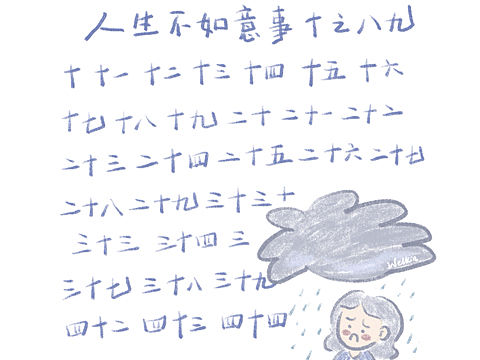 人生不如意事十之八九
十 十一 十二 十三 十四 十五 十六
十七 十八 十九 二十 二十一 二十二
二十三 二十四 二十五 二十六 二十七
二十八 二十九 三十 三十
三十三 三十四 三
三十七 三十八 三十九
四十二 四十三 四十四